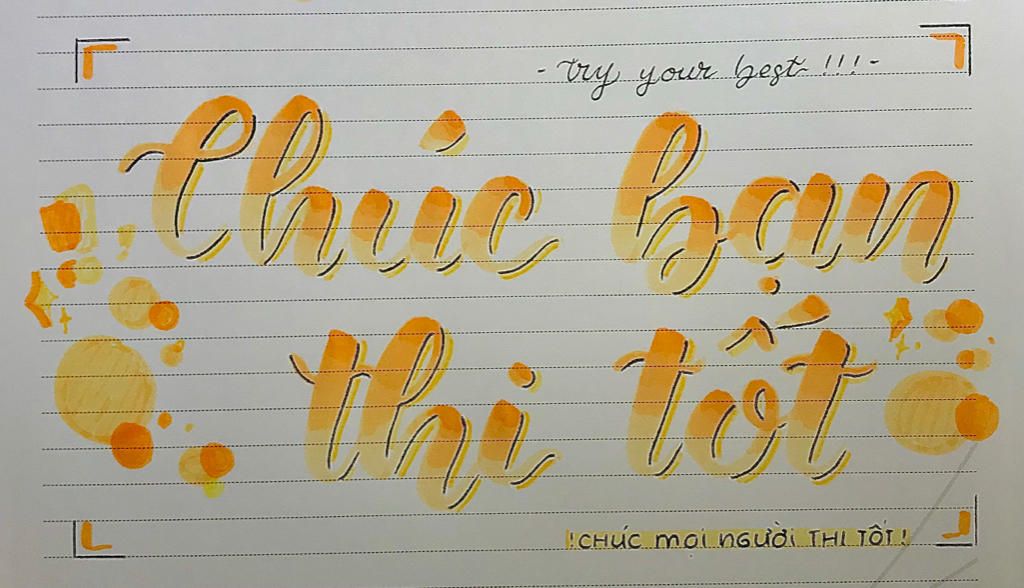 - Try your best !!! -
Chúc bạn
thi tốt
! CHÚC MỌI NGƯỜI THI TỐT !